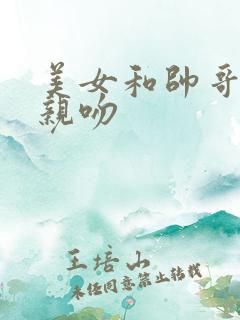 美女和帅哥
親吻
王培山
未经同意禁止转载